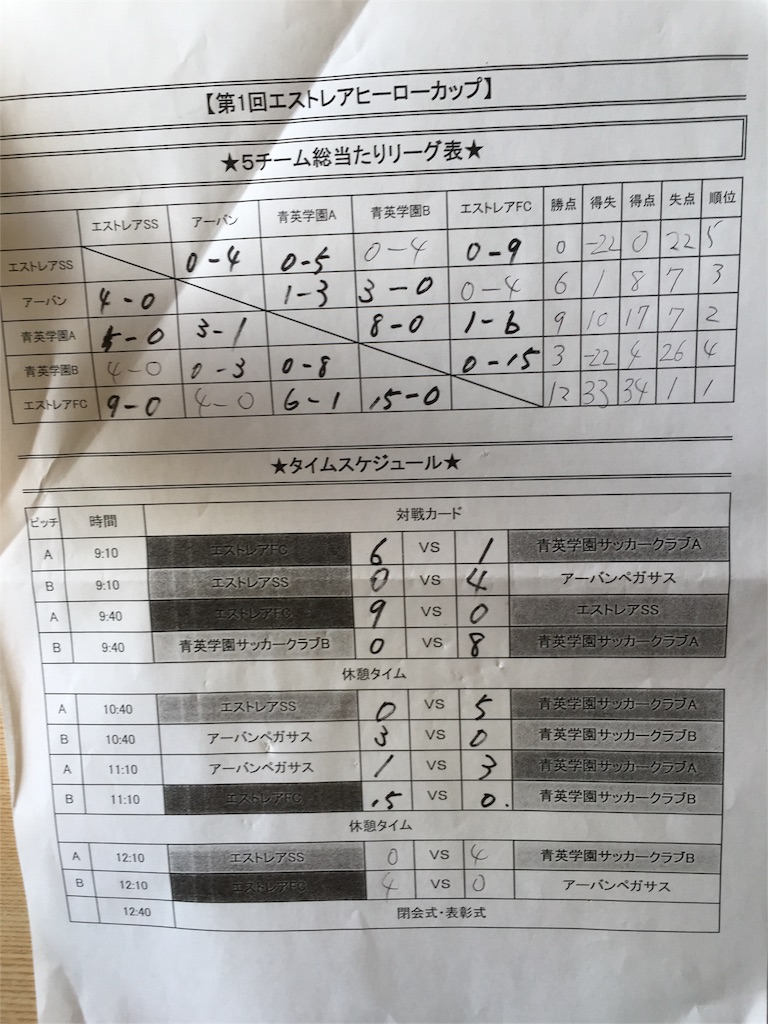 【第1回エストレアヒーローカップ】
★5チーム総当たりリーグ表★
エストレアSS アーバン 青英学園A 青英学園B エストレアFC 勝点 得失 得点 失点 順位
エストレアSS 0-4 0-5 0-4 0-9 0 -22 0 22 5
アーバン 4-0 1-3 3-0 0-4 6 1 8 7 3
青英学園A 5-0 3-1 8-0 1-6 9 10 17 7 2
青英学園B 4-0 0-3 0-8 0-15 3 -22 4 26 4
エストレアFC 9-0 4-0 6-1 15-0 12 33 34 1 1
★タイムスケジュール★
ピッチ 時間 対戦カード
A 9:10 エストレアFC 6 VS 1 青英学園サッカークラブA
B 9:10 エストレアSS 0 VS 4 アーバンペガサス
A 9:40 エストレアFC 9 VS 0 エストレアSS
B 9:40 青英学園サッカークラブB 0 VS 8 青英学園サッカークラブA
休憩タイム
A 10:40 エストレアSS 0 VS 5 青英学園サッカークラブA
B 10:40 アーバンペガサス 3 VS 0 青英学園サッカークラブB
A 11:10 アーバンペガサス 1 VS 3 青英学園サッカークラブA
B 11:10 エストレアFC 15 VS 0. 青英学園サッカークラブB
休憩タイム
A 12:10 エストレアSS 0 VS 4 青英学園サッカークラブB
B 12:10 エストレアFC 4 VS 0 アーバンペガサス
12:40 閉会式・表彰式